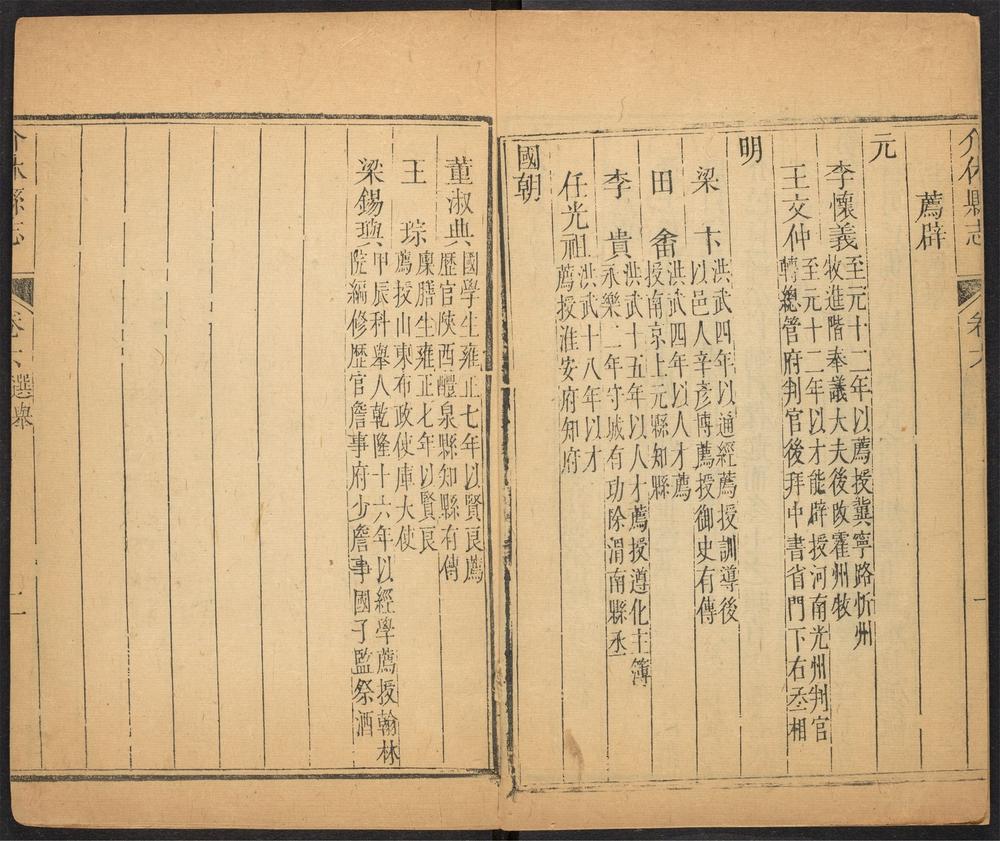 介休縣志
卷六
一
薦辟
元
李懷義
至元十二年以薦授冀寧路忻州
牧進階奉議大夫後改霍州牧
王文仲
至元十二年以才能辟授河南光州判官
轉總管府判官後拜中書省門下右丞相
明
梁卞
洪武四年以通經薦授訓導後
以邑人辛彥博薦授御史有傳
田畬
洪武四年以人才薦
授南京上元縣知縣
李貴
洪武十五年以人才薦授遵化主簿
永樂二年守城有功除渭南縣丞
任光祖
洪武十八年以才
薦授淮安府知府
國朝
董淑典
國學生雍正七年以賢良薦
歷官陝西醴泉縣知縣有傳
王琮
廩膳生雍正七年以賢良
薦授山東布政使庫大使
梁錫璵
甲辰科舉人乾隆十六年以經學薦授翰林
院編修歷官詹事府少詹事國子監祭酒
介休縣志
卷六
選舉
二